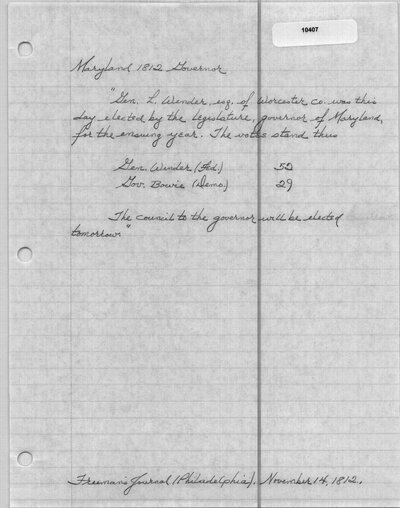 10407
Maryland 1812 Governor
"Gen. L. Winder, esq. of Worcester co. was this
day elected by the legislature, governor of Maryland,
for the ensuing year. The votes stand thus
Gen. Winder (Fed.) 52
Gov. Bowie (Demo.) 29
The council to the governor will be elected
tomorrow."
Freemans Journal (Philadelphia). November 14, 1812.